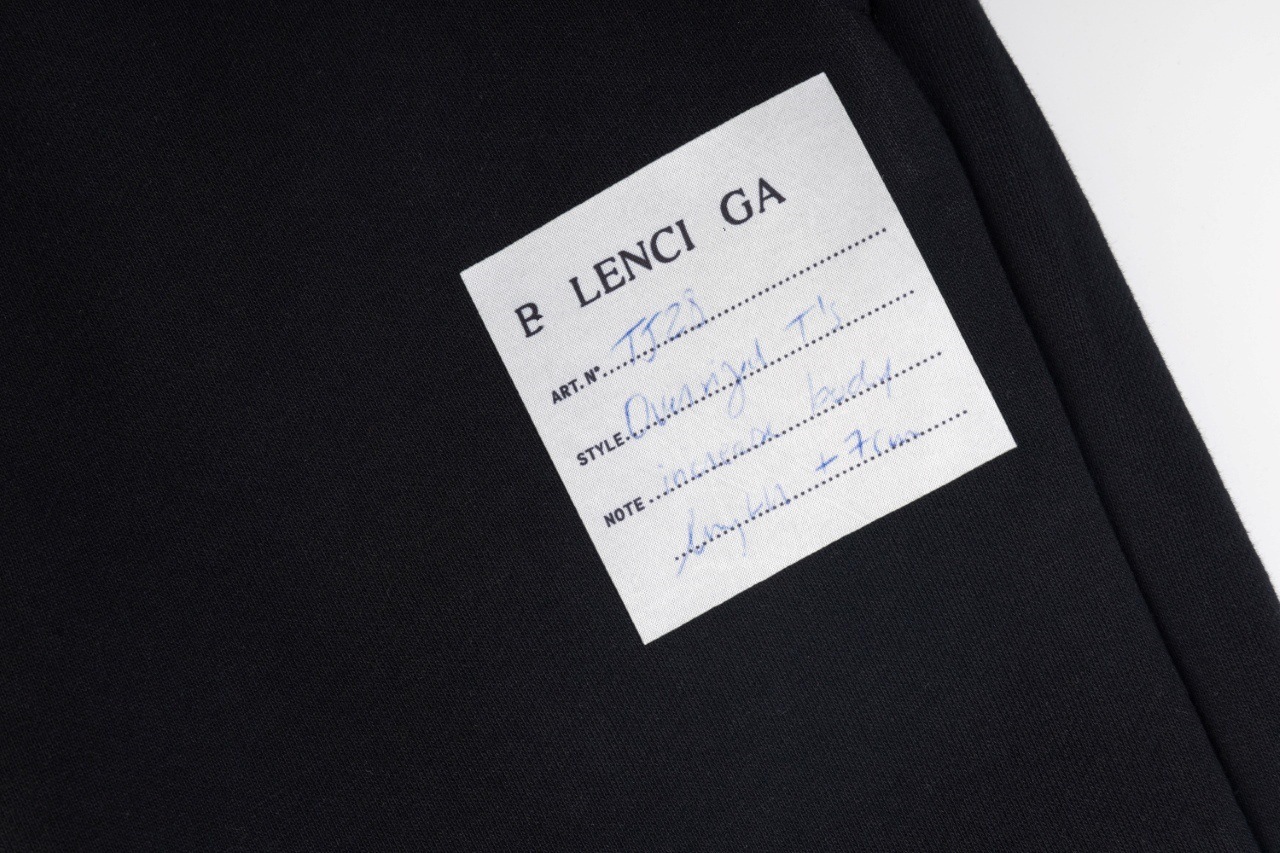 B LENCI GA
ART. Nº TJ28
STYLE Oversized T's
NOTE increase body
length +7cm